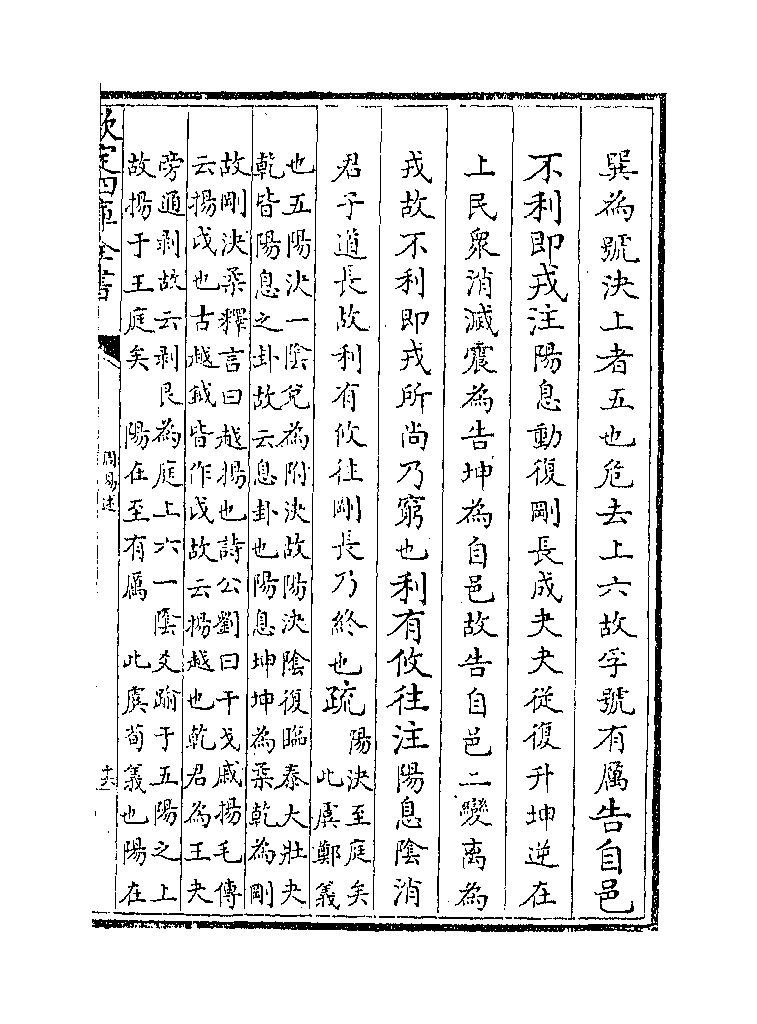 巽為號決上者五也危去上六故孚號有厲告自邑
不利即戎注陽息動復剛長成夬夬從復升坤逆在
上民衆消滅震為告坤為自邑故告自邑二變離為
戎故不利即戎所尚乃窮也利有攸往注陽息陰消
君子道長故利有攸往剛長乃終也疏陽決至庭矣
此虞鄭義
也五陽決一陰兌為附決故陽決陰復臨泰大壯夬
乾皆陽息之卦故云息卦也陽息坤坤為柔乾為剛
故剛決柔釋言曰越揚也詩公劉曰干戈戚揚毛傳
云揚戉也古越鉞皆作戉故云揚越也乾君為王夬
旁通剥故云剥艮為庭上六一陰爻踰于五陽之上
故揚于王庭矣 陽在至有厲 此虞荀義也陽在
欽定四庫全書
周易述
十六